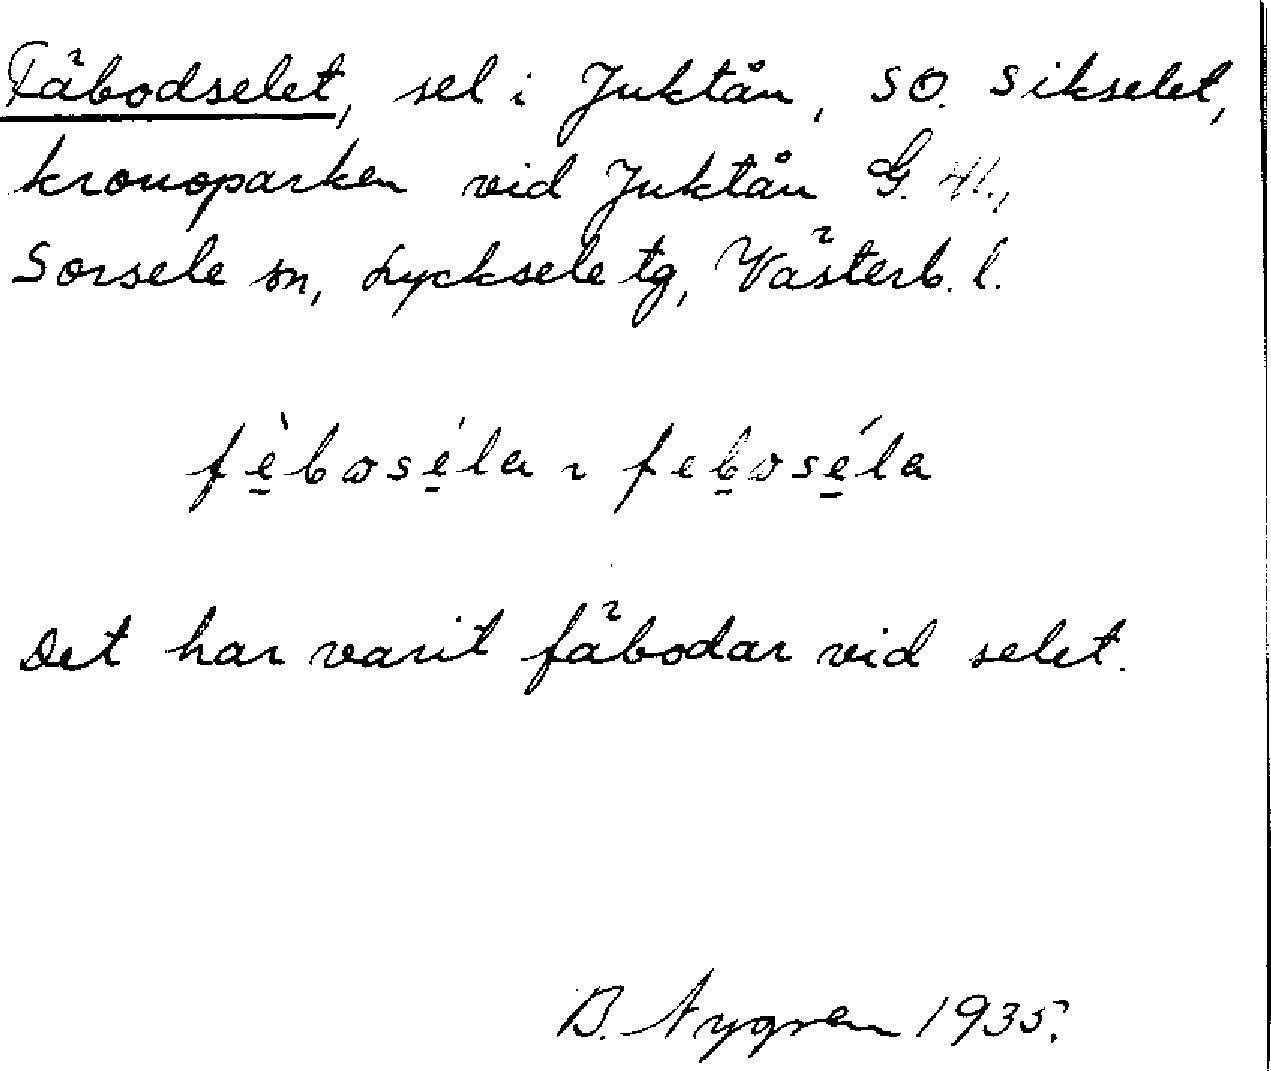 Fäbodselet, sel i Juktån, SO. Sikselet,
kronoparken vid Juktån G. 41.,
Sorsele sn, Lycksele tg, Västerb. l.
fè̱bωsé̱la ~ feḇωsé̱la
Det har varit fäbodar vid selet.
B. Nygren 1935.